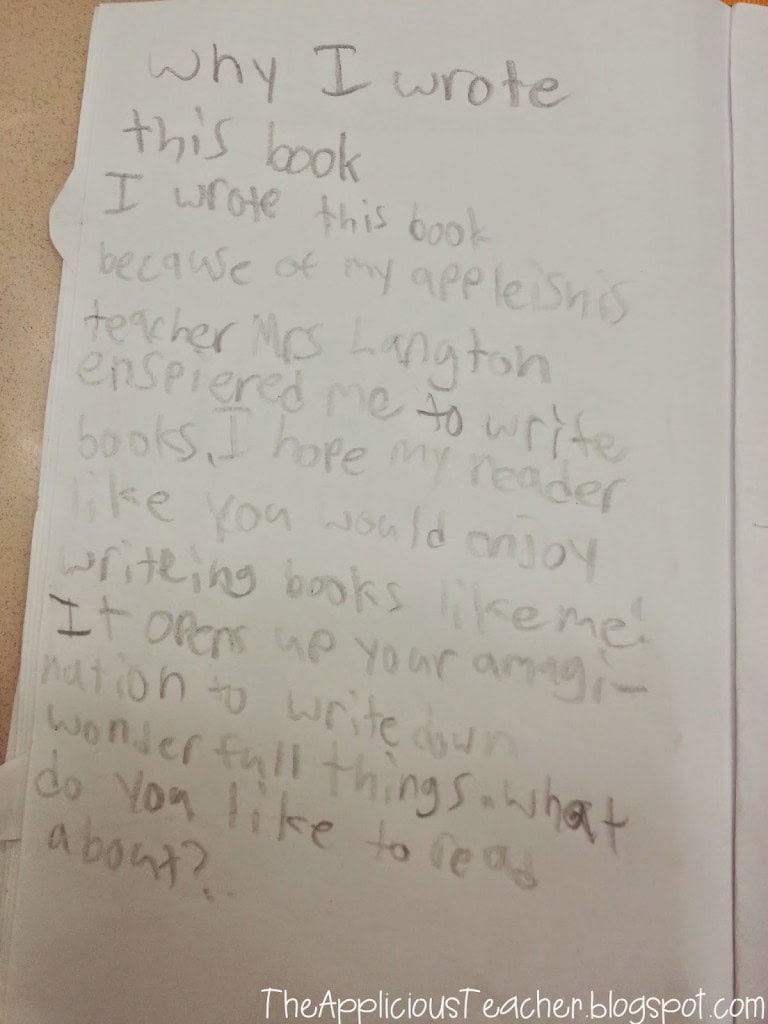 why I wrote
this book
I wrote this book
because of my appleishis
teacher Mrs Langton
enspiered me to write
books. I hope my reader
like you would enjoy
writeing books like me!
It opens up your amagi-
nation to write down
wonderfull things. what
do you like to read
about?
TheAppliciousTeacher.blogspot.com